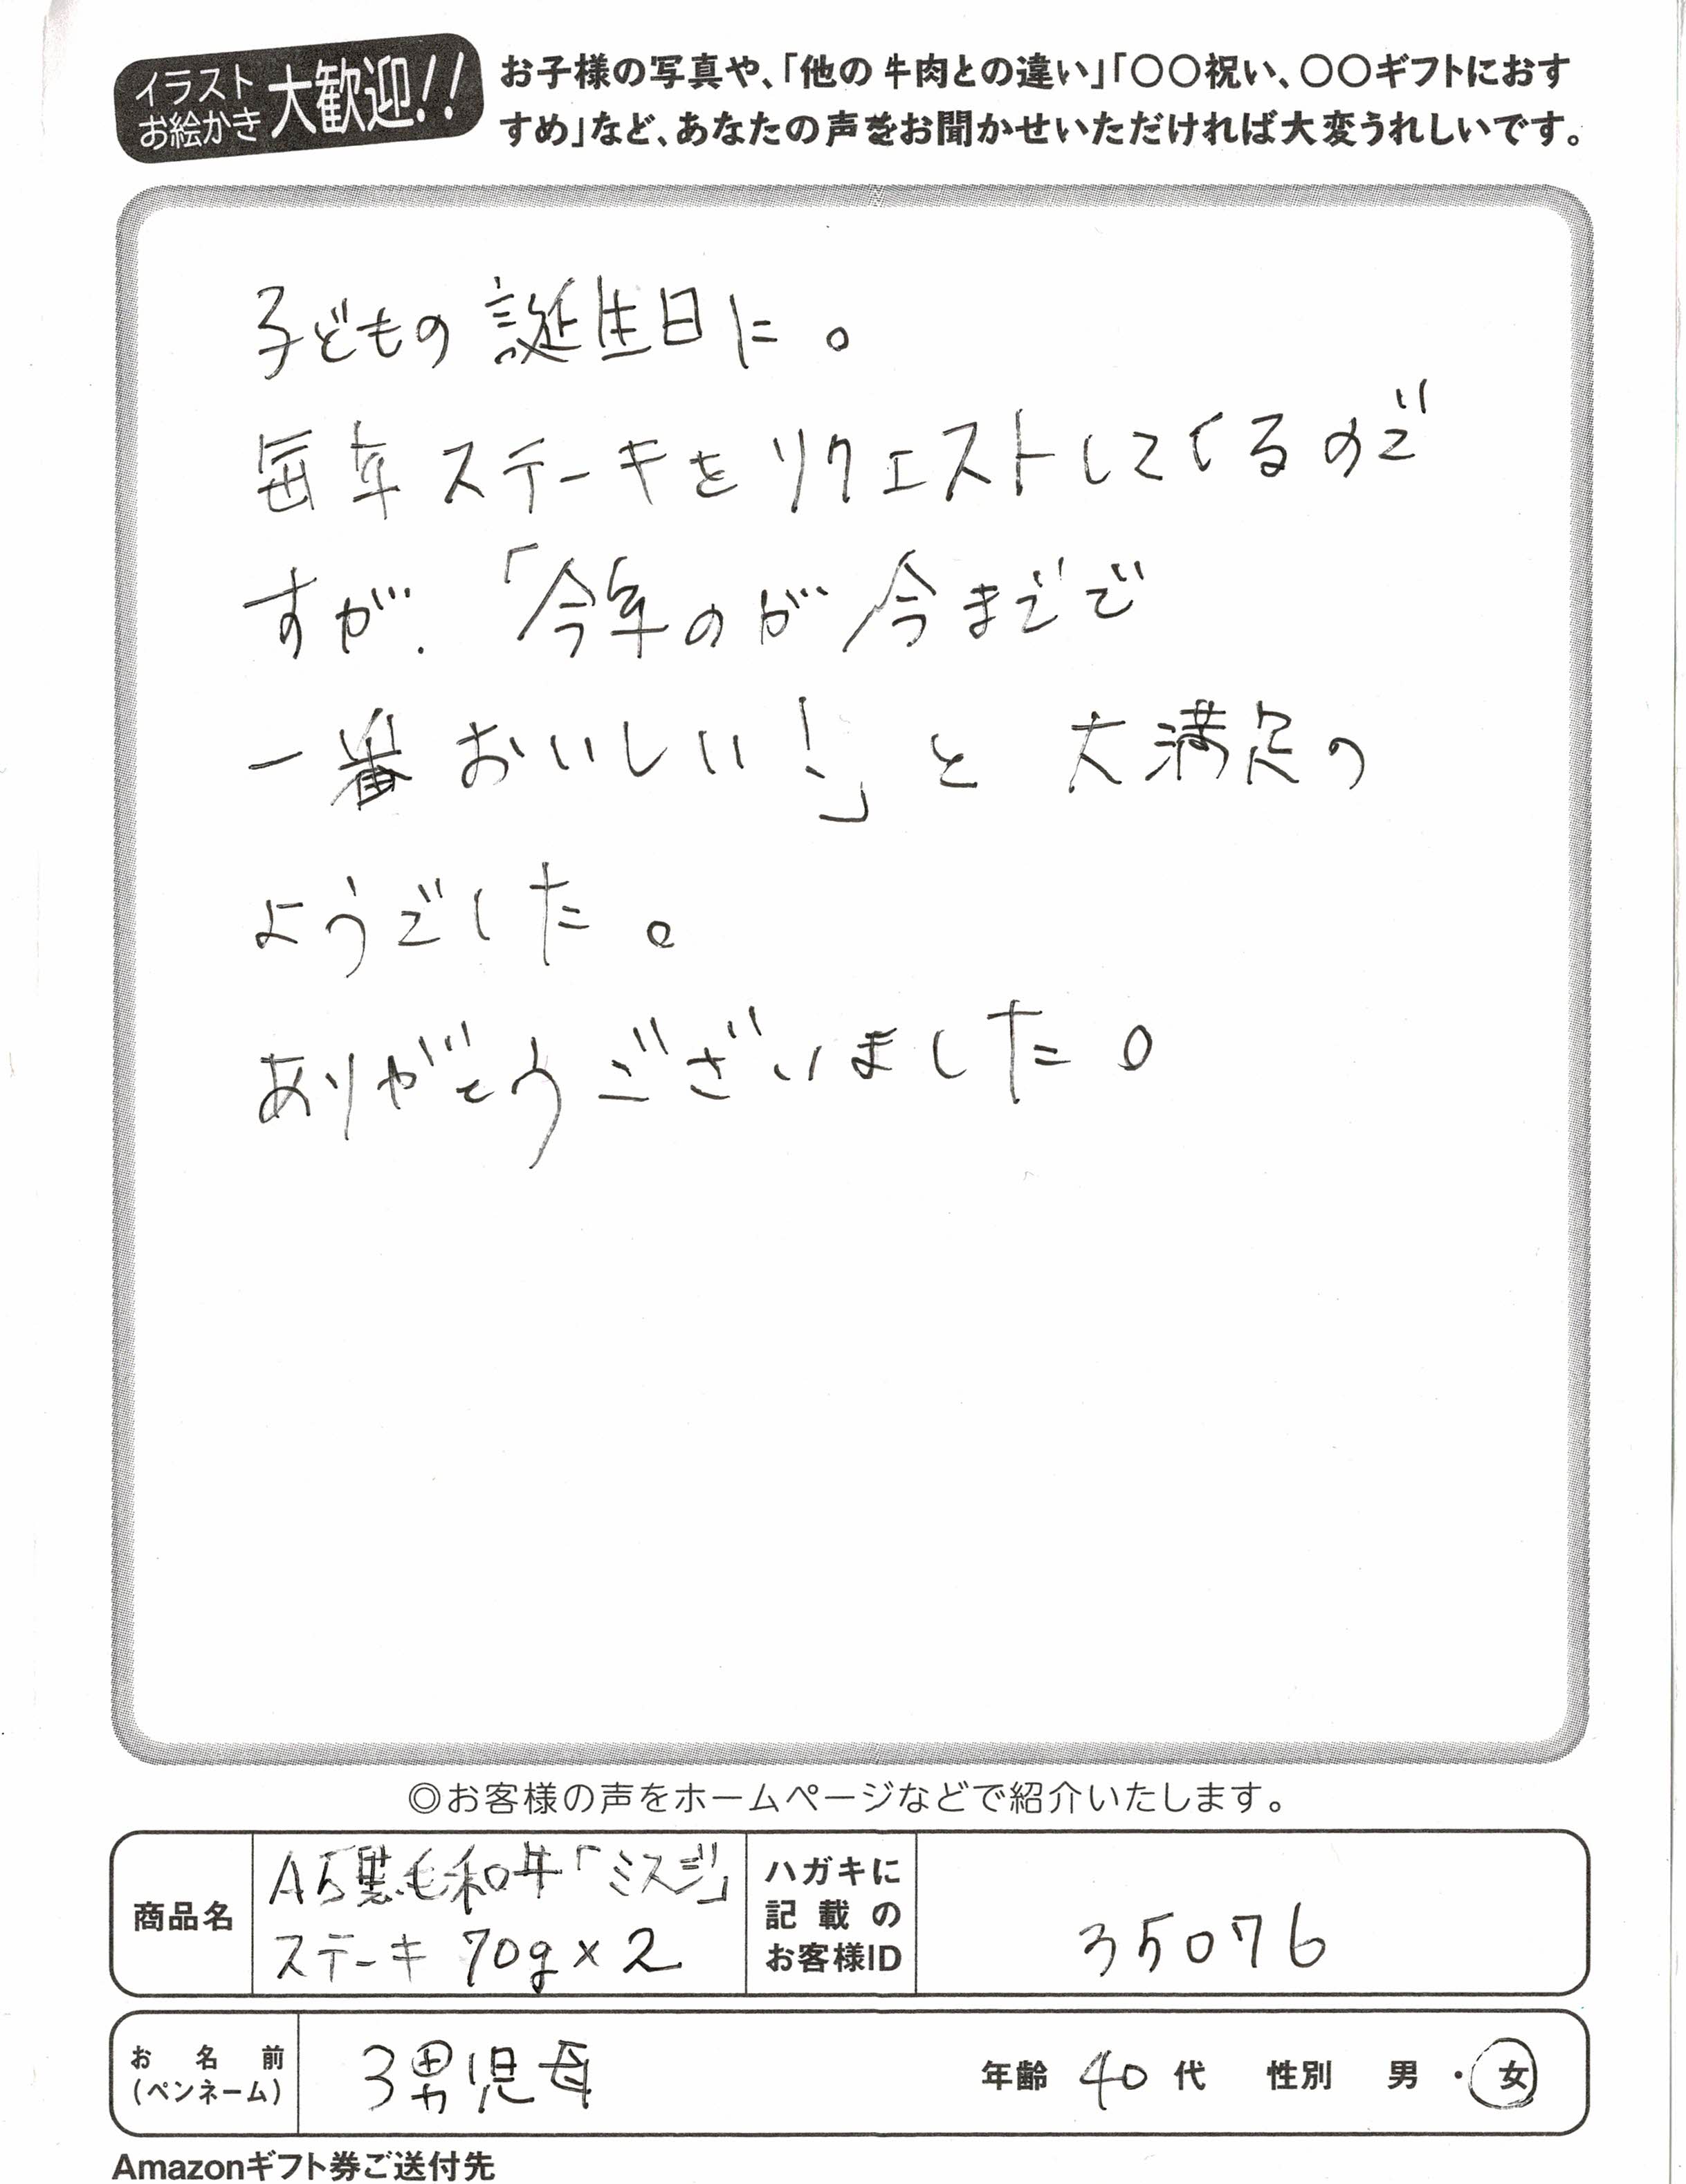 イラスト
お絵かき
大歓迎!!
お子様の写真や、「他の牛肉との違い」「〇〇祝い、〇〇ギフトにおす
すめ」など、あなたの声をお聞かせいただければ大変うれしいです。
子どもの誕生日に。
毎年ステーキをリクエストしてくるので
すが、「今年のが今までで
一番おいしい!」と大満足の
ようでした。
ありがとうございました。
◎お客様の声をホームページなどで紹介いたします。
商品名
A5黒毛和牛「ミスジ」
ステーキ 70g×2
ハガキに
記載の
お客様ID
35076
お名前
(ペンネーム)
3男児母
年齢 40代 性別 男・女
Amazonギフト券ご送付先